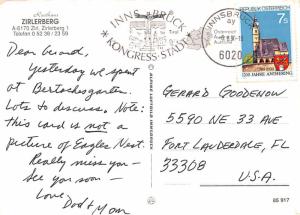 Kurhaus
ZIRLERBERG
A-6170 Zirl, Zirlerberg 1
Telefon 0 52 38 / 23 59
INNSBRUCK
Tirol
KONGRESS-STADT
INNSBRUCK
6020
REPUBLIK ÖSTERREICH
7s
1200 JAHRE AMTSBERG
Dear Grand,
Yesterday we spent
at Bertschsgarten.
Lots to discuss. Note:
this card is not a
picture of Eagles Nest.
Really miss you -
see you soon -
Love,
Dad + Mom
GERARD GOODENOW
5590 NE 33 AVE
FORT LAUDERDALE, FL
33308
U.S.A.
85 917